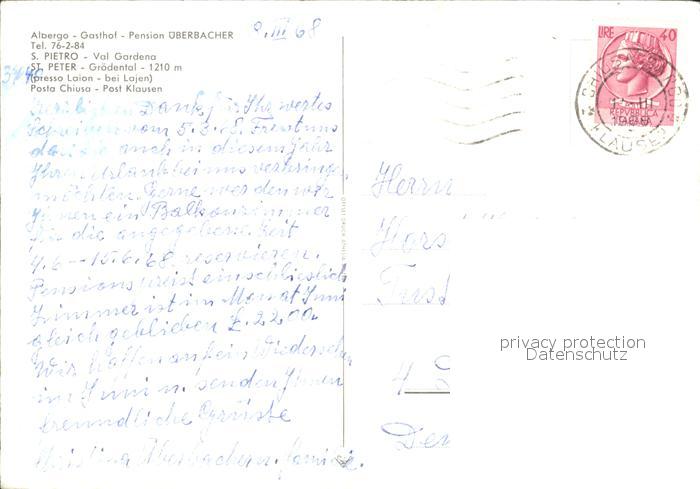 Albergo - Gasthof - Pension ÜBERBACHER
Tel. 76-2-84
S. PIETRO - Val Gardena
ST. PETER - Grödental - 1210 m
(presso Laion - bei Lajen)
Posta Chiusa - Post Klausen
9. III 68
Herzlichen Dank für Ihr wertes
Schreiben vom 5.3.68. Freut uns
daß Sie auch in diesem Jahr
Ihren Urlaub bei uns verbringen
möchten. Gerne werden wir
Ihnen ein Balkonzimmer
für die angegebene Zeit
4.6 - 15.6.68 reservieren.
Pensionspreis einschließlich
Zimmer ist im Monat Juni
gleich geblieben £. 2200.
Wir hoffen auf ein Wiedersehen
im Juni u. senden Ihnen
freundliche Grüsse
Überbacher u. Familie.
LIRE 40
REPVBBLICA
KLAUSEN
Herrn
Hors
4
Deu
privacy protection
Datenschutz